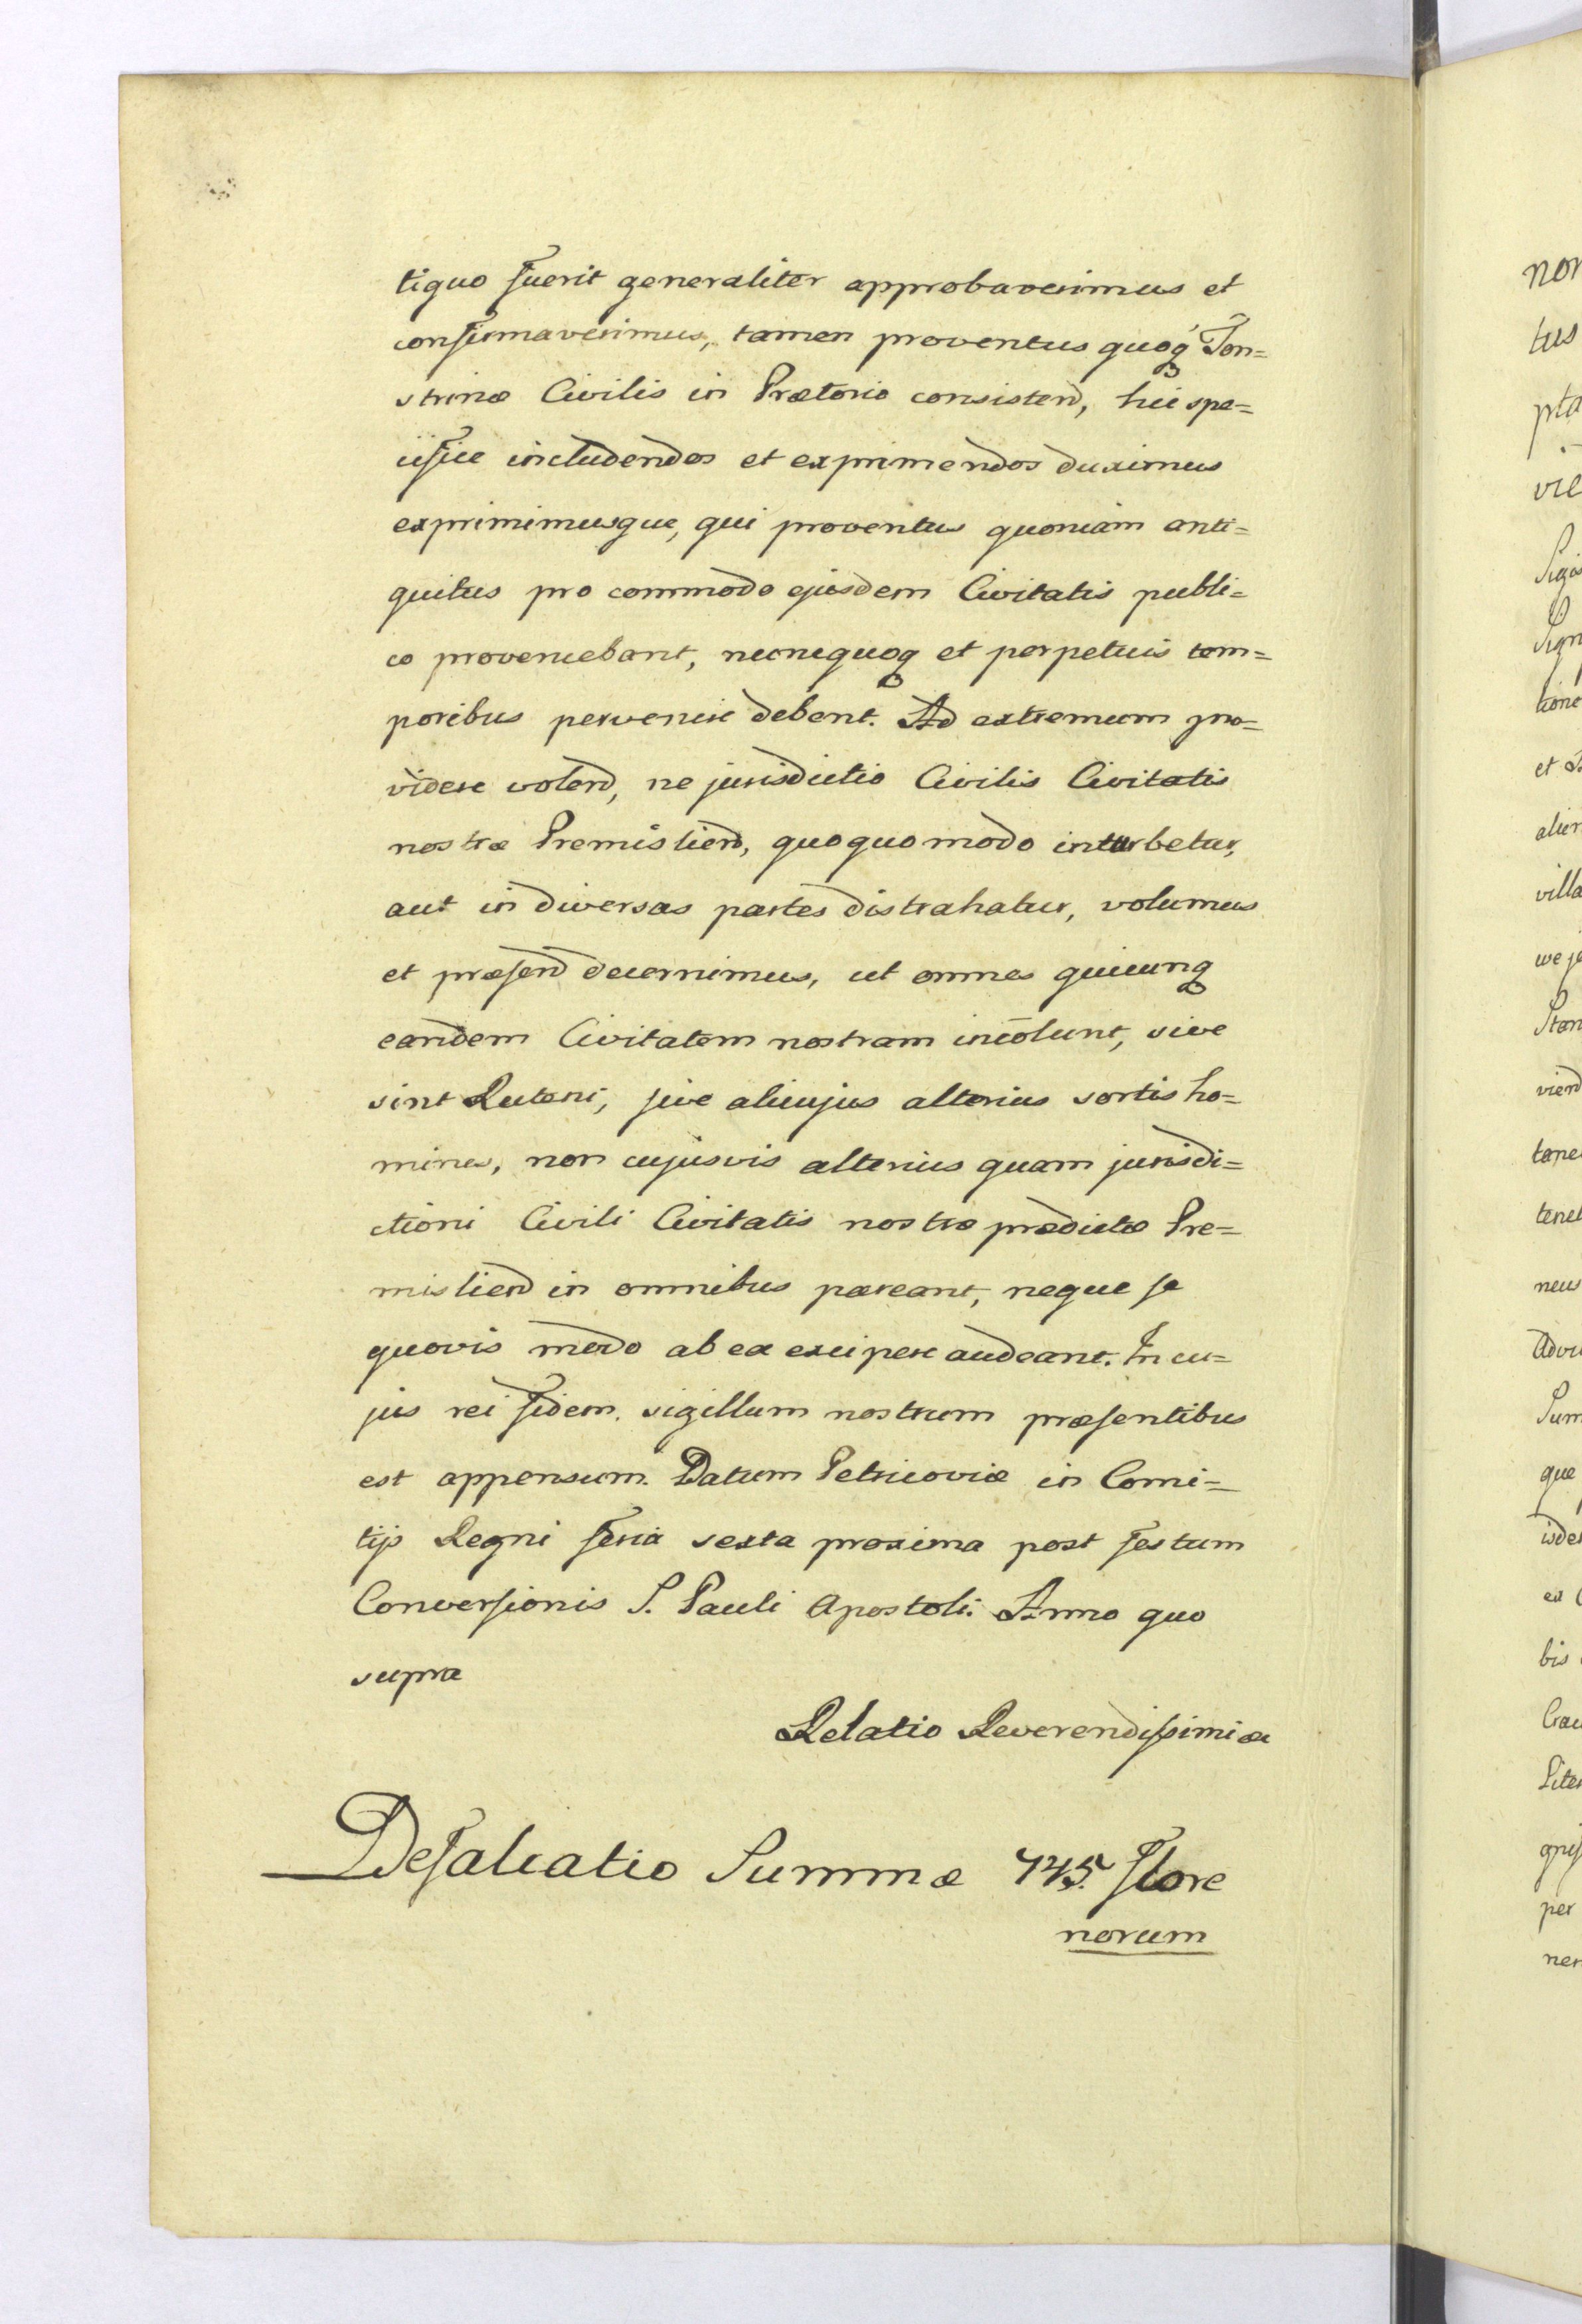 tiquo fuerit generaliter approbaverimus et
confirmaverimus, tamen proventus quoq́ Ton=
strinæ Civilis in Prætorio consisten̄, hic spe=
cifice includendos et exprimendos duximus
exprimimusque, qui proventus quoniam anti=
quitus pro commodo ejusdem Civitatis publi=
co proveniebant, nuncquoq et perpetuis tem=
poribus pervenire debent. Ad extremum pro=
videre volen̄, ne jurisdictio Civilis Civitatis
nostræ Premislien̄, quoquomodo inturbetur,
aut in diversas partes distrahatur, volumus
et præsen̄ decernimus, ut omnes quicunq
eandem Civitatem nostram incolunt, sive
sint Ruteni, sive alicujus alterius sortis ho=
mines, non cujusvis alterius quam jurisdi=
ctioni Civili Civitatis nostræ prædictæ Pre=
mislien̄ in omnibus pareant, neque se
quovis modo ab ea excipere audeant. In cu=
jus rei fidem sigillum nostrum præsentibus
est appensum. Datum Petricoviæ in Comi=
tijs Regni feria sexta proxima post festum
Conversionis S. Pauli Apostoli. Anno quo
supra
Relatio Reverendissimi &
Defalcatio Summæ 745. Flore
norum
non
tus
pta
vie
Sigis
Sign
tione
et
alien
villa
Stan
vien̄
tene
neus
Advo
Sum
que
isde
bis
Crac
Liter
per
ner